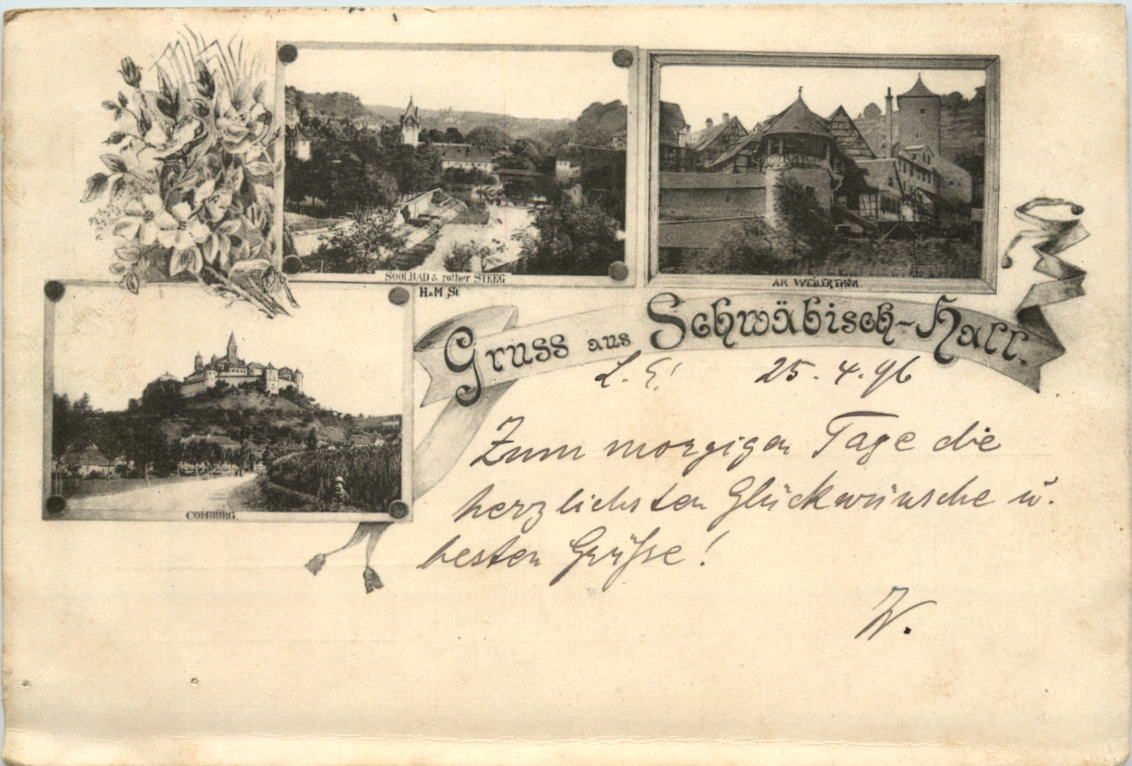 SOOLBAD & rother STEEG
H&M St
AM WEILERTHOR.
COMBURG.
Gruss aus Schwäbisch-Hall.
L. E! 25. 4. 96
Zum morgigen Tage die
herzlichsten Glückwünsche u.
besten Grüße!
W.